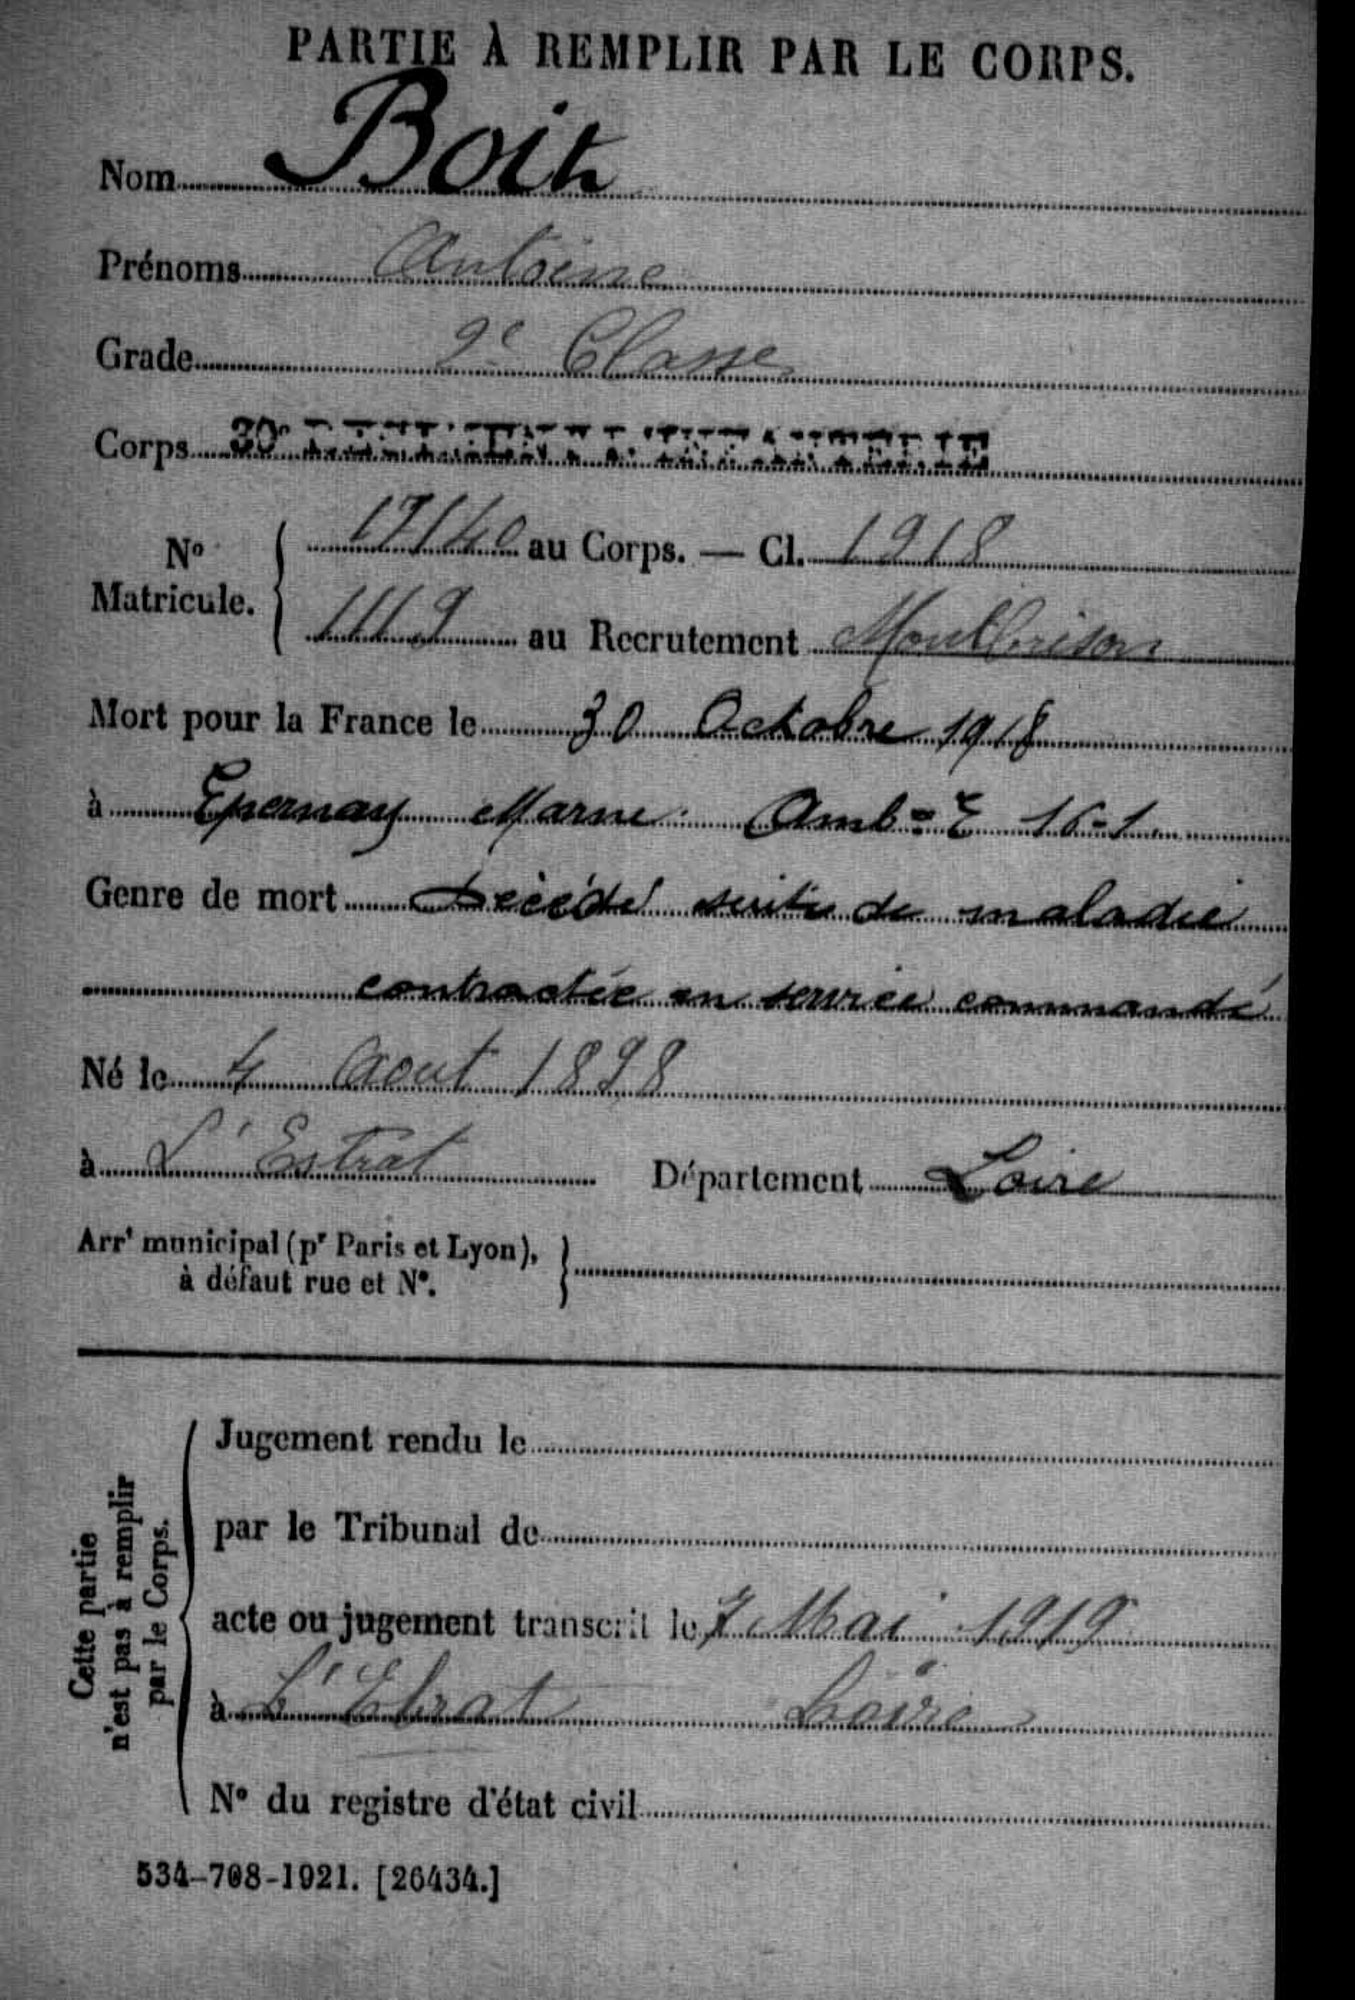 PARTIE À REMPLIR PAR LE CORPS.
Nom Boit
Prénoms Antoine
Grade 2e Classe
Corps 30e RÉGIMENT D'INFANTERIE
No Matricule. 17140 au Corps. — Cl. 1918
1119 au Recrutement Montbrison
Mort pour la France le 30 Octobre 1918
à Epernay Marne Amb=e 16-1
Genre de mort Décédé suite de maladie
contractée en service commandé
Né le 4 Aout 1898
à L'Estrat Département Loire
Arrt municipal (pr Paris et Lyon),
à défaut rue et No.
Cette partie
n'est pas à remplir
par le Corps.
Jugement rendu le
par le Tribunal de
acte ou jugement transcrit le 7 Mai 1919
à L'Etrat Loire
No du registre d'état civil
534-708-1921. [26434.]